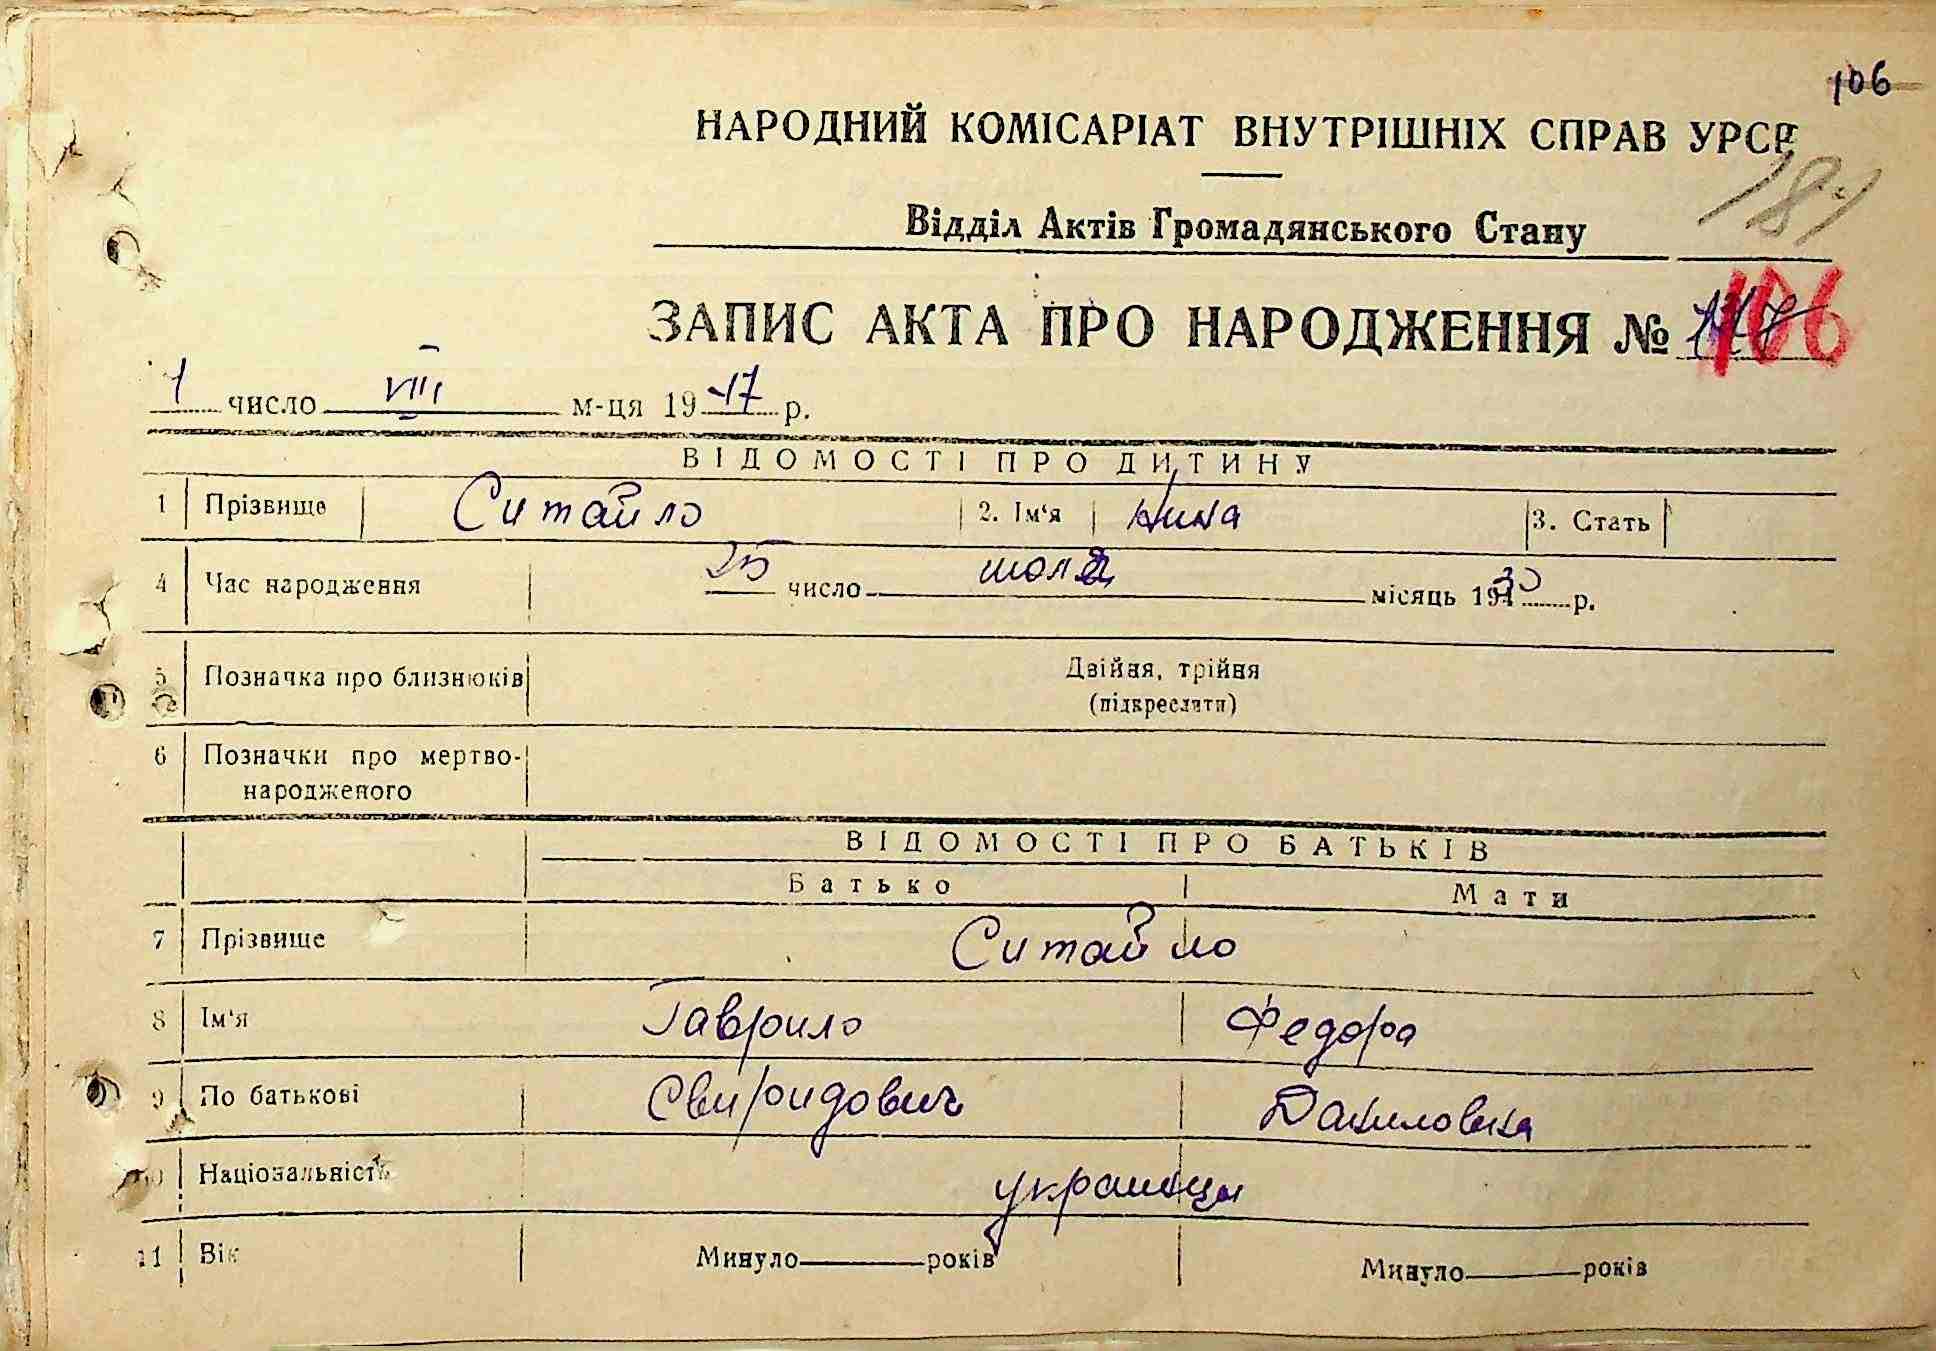 106
НАРОДНИЙ КОМІСАРІАТ ВНУТРІШНІХ СПРАВ УРСР
Відділ Актів Громадянського Стану
ЗАПИС АКТА ПРО НАРОДЖЕННЯ № 106
1 число VIII м-ця 1947 р.
ВІДОМОСТІ ПРО ДИТИНУ
1 Прізвище Ситайло 2. Ім'я Нина 3. Стать
4 Час народження 25 число июля місяць 1930 р.
5 Позначка про близнюків Двійня, трійня
(підкреслити)
6 Позначки про мертво-
народженого
ВІДОМОСТІ ПРО БАТЬКІВ
Батько Мати
7 Прізвище Ситайло
8 Ім'я Гаврило Федора
9 По батькові Свиридович Даниловна
10 Національність украинцы
11 Вік Минуло років Минуло років